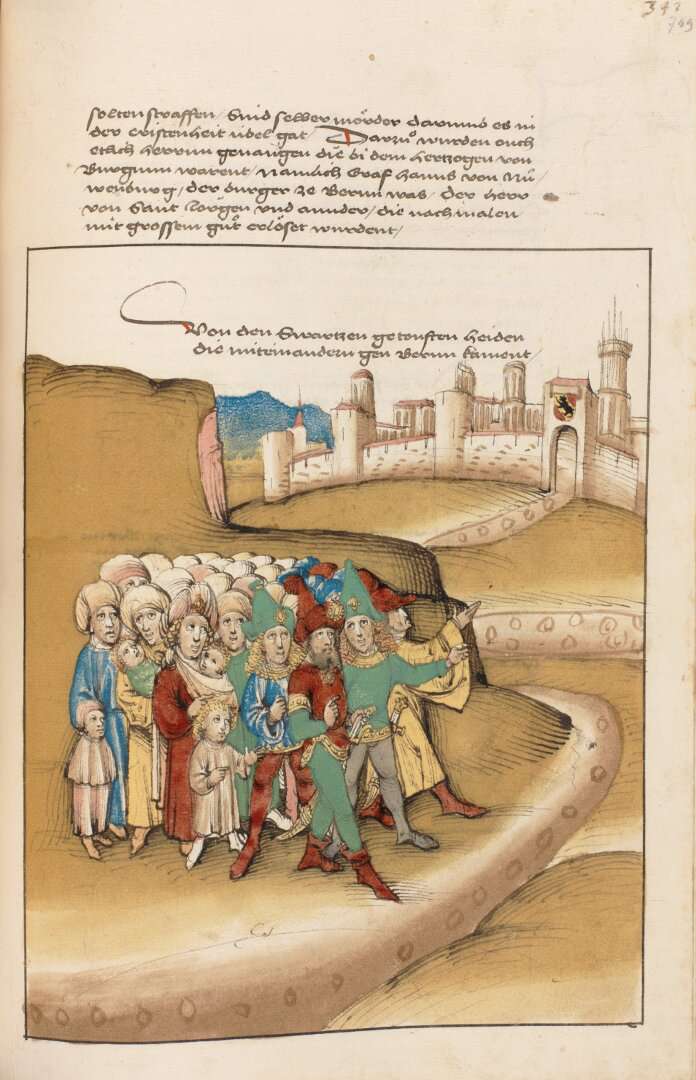 342
749
solten straffen / Sind selber mörder darumb es in
der cristenheit übel gat / Darzů wurden ouch
etlich herrnn gevangen die bi dem hertzogen von
Burgunn warent / Namlich Graf hanns von Nü
wenburg / der burger ze Bernn was / der herr
von Sant Jörgen und annder / die nachmalen
mit grossem gůt erlöset wurdent /
Von den Swartzen getoufften heiden
die miteinandern gen Bernn kament /